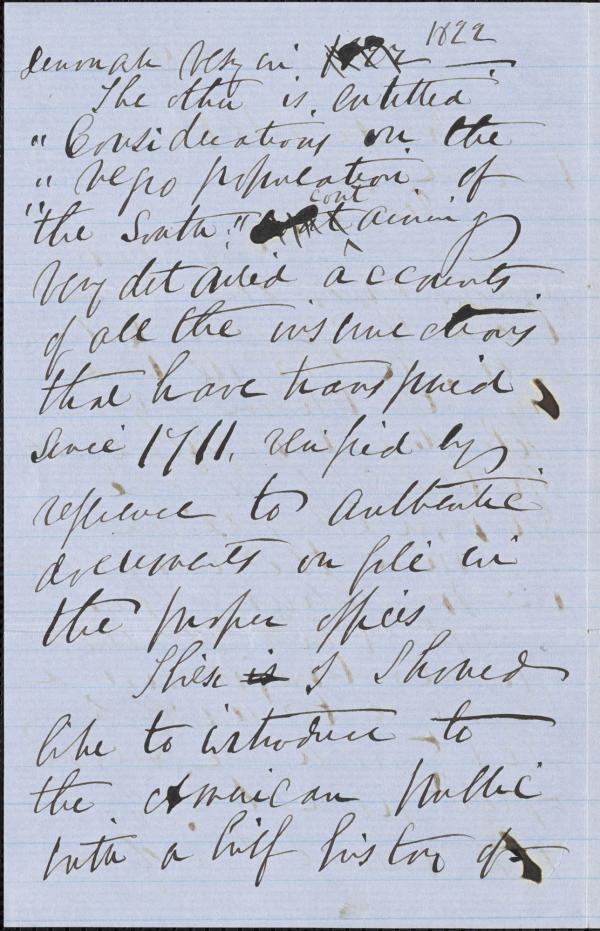 Denmark Vesey in 1822
The other is entitled
" Considerations on the
" Negro population of
" the South." containing
very detailed accounts
of all the insurrections
that have transpired
since 1711. verified by
reference to authentic
documents on file in
the proper offices
These is I should
like to introduce to
the American public
with a brief history of